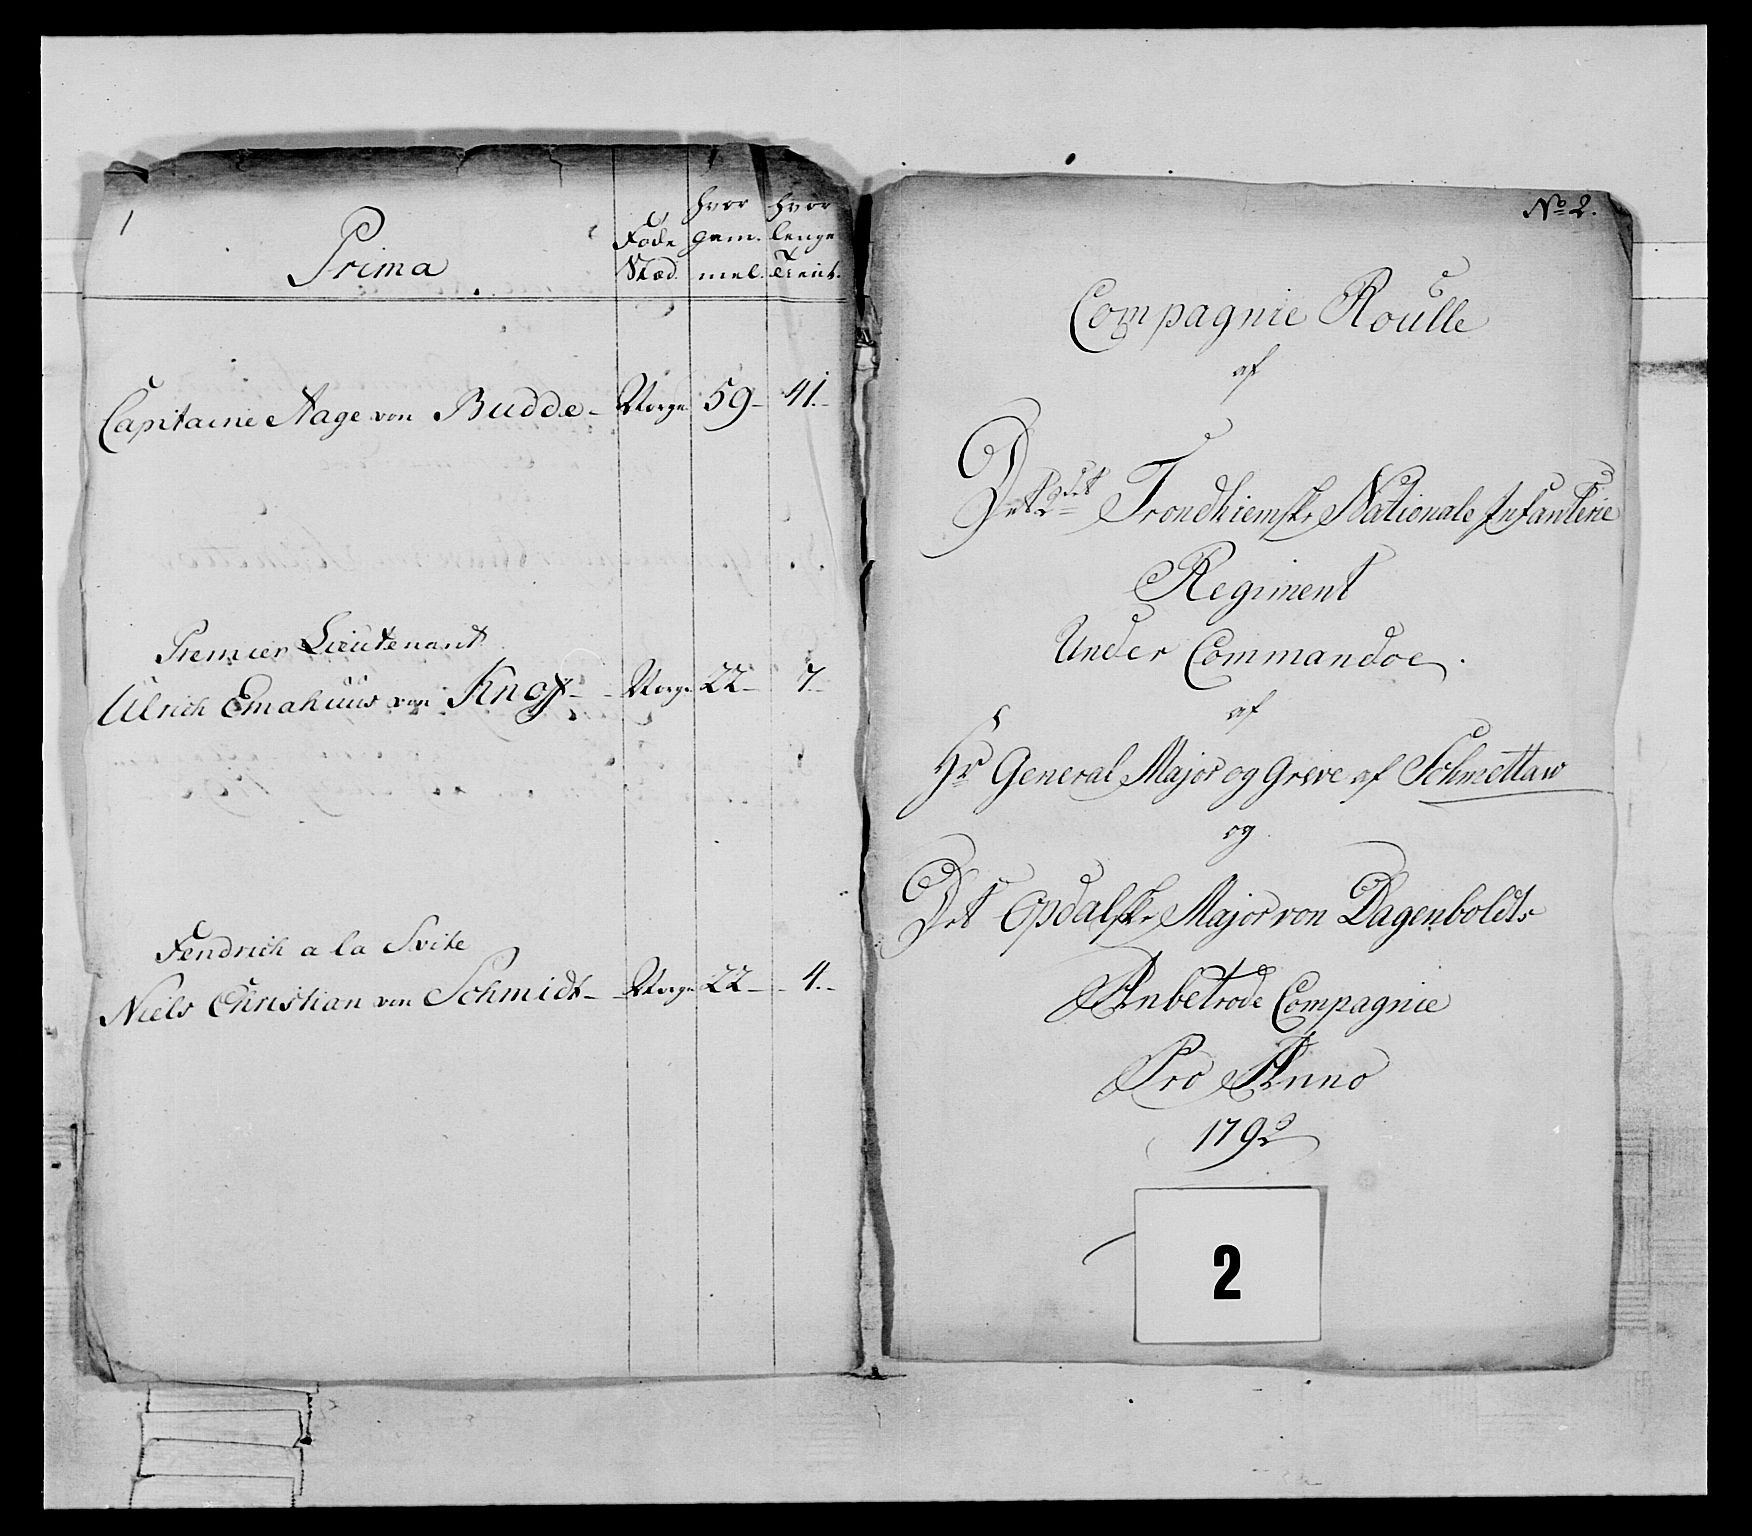 1
Prima
Føde Stæd.
hvor gam. mel.
hvor lenge Tient.
Capitaine Aage von Budde - Norge 59 - 41.-
Premier Lieutenant
Ulrich Emahuus von Knoff - Norge 22 - 7.-
Fendrich a la Svite
Niels Christian von Schmidt - Norge 22 - 4.-
No 2.
Compagnie Roulle
af
Det 2det Trondhiemske Nationale Infanterie
Regiment
Under Commandoe.
af
Hr General Major og Greve af Schmettaw
og
Det Opdalske Major von Dagenboldts
Anbetrode Compagnie
Pro Anno
1792
2